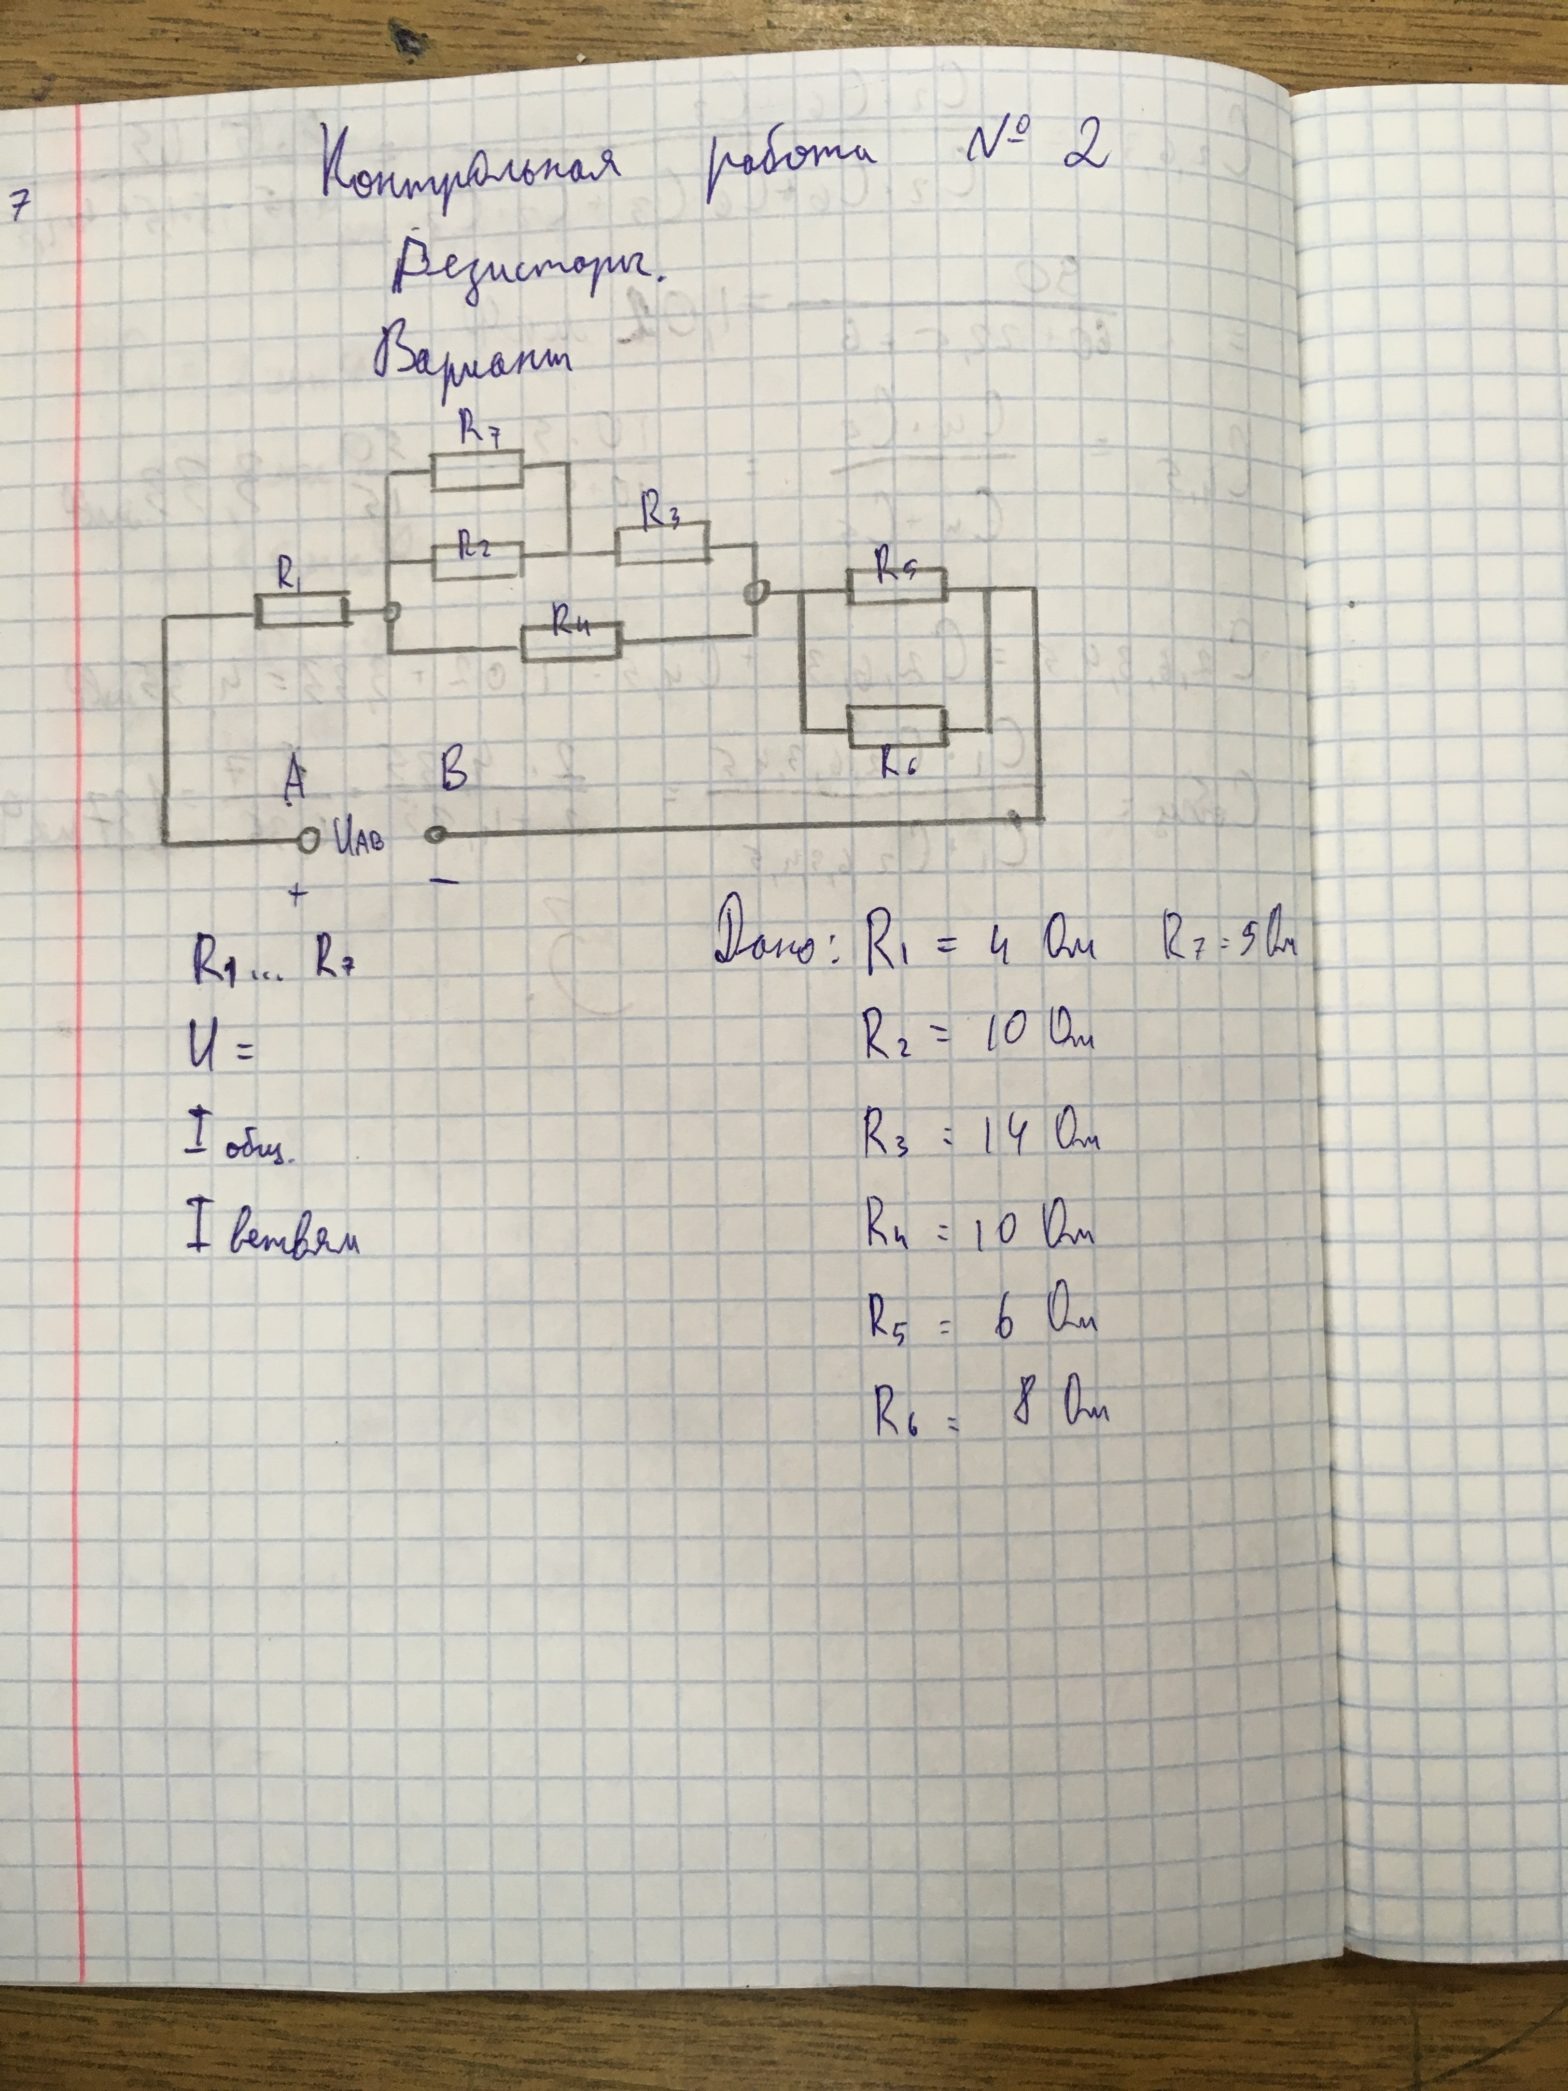 7
Контрольная работа № 2
Резисторы.
Вариант
R7
R3
R2
R5
R1
R4
R6
A B
UAB
+ −
R1... R7
U =
I общ.
I ветвям
Дано: R1 = 4 Ом R7 = 5 Ом
R2 = 10 Ом
R3 = 14 Ом
R4 = 10 Ом
R5 = 6 Ом
R6 = 8 Ом